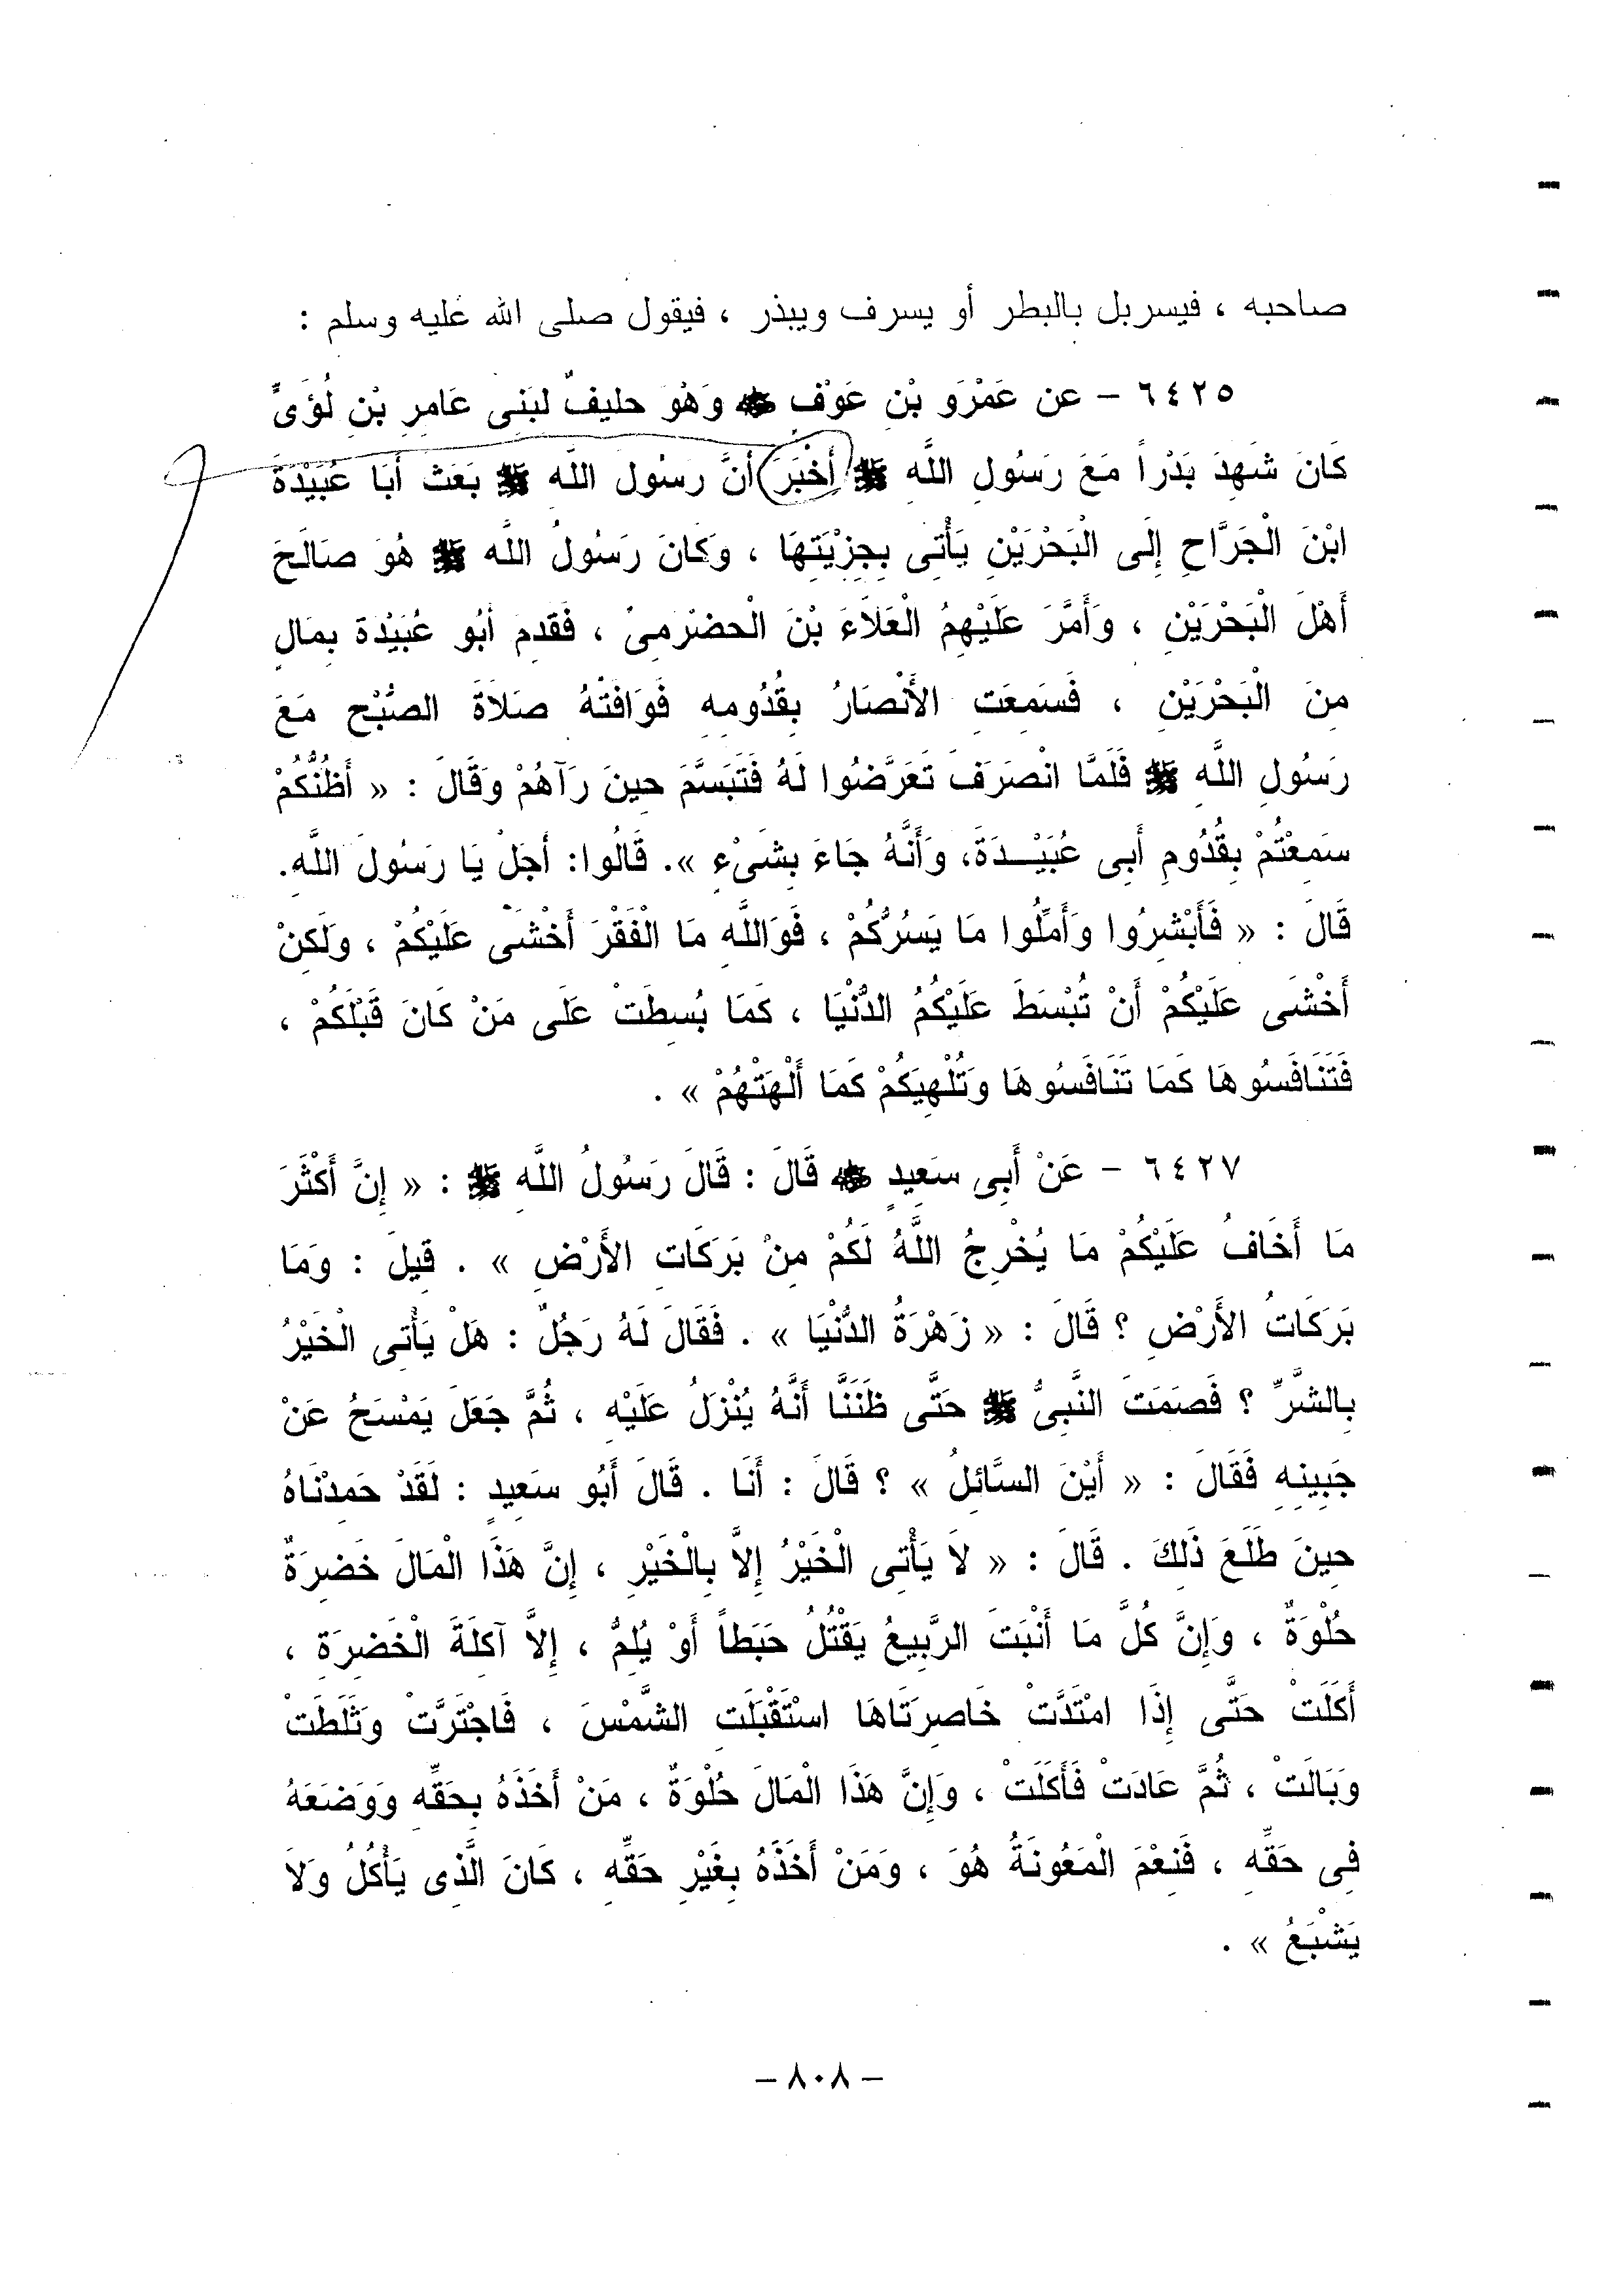 صاحبه ، فيسربل بالبطر أو يسرف ويبذر ، فيقول صلى الله عليه وسلم :
٦٤٢٥ - عن عَمْرَو بْنِ عَوْفٍ ﷺ وَهُوَ حليفٌ لبَنِى عَامِرِ بْنِ لُؤَىٍّ
كَانَ شَهِدَ بَدْراً مَعَ رَسُولِ اللَّهِ ﷺ أَخْبَرَ أنَّ رسُول اللَّه ﷺ بَعَث أبَا عُبَيْدَةَ
ابْنَ الْجَرَّاحِ إِلَى الْبَحْرَيْنِ يَأْتِى بِجِزْيَتِهَا ، وَكَانَ رَسُولُ اللَّه ﷺ هُوَ صَالَحَ
أَهْلَ الْبَحْرَيْنِ ، وَأَمَّرَ عَلَيْهِمُ الْعَلاَءَ بْنَ الْحضْرَمِىّ ، فَقَدِم أبُو عُبَيْدة بِمَالٍ
مِنَ الْبَحْرَيْنِ ، فَسَمِعَتِ الأَنْصَارُ بِقُدُومِهِ فَوَافَتْهُ صَلاَةَ الصُّبْحِ مَعَ
رَسُولِ اللَّهِ ﷺ فَلَمَّا انْصَرَفَ تَعَرَّضُوا لَهُ فَتَبَسَّمَ حِينَ رَآهُمْ وَقَالَ : « أَظُنُّكُمْ
سَمِعْتُمْ بِقُدُومِ أَبِى عُبَيْـــدَةَ، وَأَنَّهُ جَاءَ بِشَىْءٍ ». قَالُوا: أجَلْ يَا رَسُولَ اللَّهِ.
قَالَ : « فَأَبْشِرُوا وَأَمِّلُوا مَا يَسُرُّكُمْ ، فَوَاللَّهِ مَا الْفَقْرَ أَخْشَى عَلَيْكُمْ ، وَلَكِنْ
أَخْشَى عَلَيْكُمْ أَنْ تُبْسَطَ عَلَيْكُمُ الدُّنْيَا ، كَمَا بُسِطَتْ عَلَى مَنْ كَانَ قَبْلَكُمْ ،
فَتَنَافَسُوهَا كَمَا تَنَافَسُوهَا وَتُلْهِيَكُمْ كَمَا أَلْهَتْهُمْ » .
٦٤٢٧ - عَنْ أَبِى سَعِيدٍ ﷺ قَالَ : قَالَ رَسُولُ اللَّهِ ﷺ : « إِنَّ أَكْثَرَ
مَا أَخَافُ عَلَيْكُمْ مَا يُخْرِجُ اللَّهُ لَكُمْ مِنْ بَرَكَاتِ الأَرْضِ » . قِيلَ : وَمَا
بَرَكَاتُ الأَرْضِ ؟ قَالَ : « زَهْرَةُ الدُّنْيَا » . فَقَالَ لَهُ رَجُلٌ : هَلْ يَأْتِى الْخَيْرُ
بِالشَّرِّ ؟ فَصَمَتَ النَّبِىُّ ﷺ حَتَّى ظَنَنَّا أَنَّهُ يُنْزَلُ عَلَيْهِ ، ثُمَّ جَعَلَ يَمْسَحُ عَنْ
جَبِينِهِ فَقَالَ : « أَيْنَ السَّائِلُ » ؟ قَالَ : أَنَا . قَالَ أَبُو سَعِيدٍ : لَقَدْ حَمِدْنَاهُ
حِينَ طَلَعَ ذَلِكَ . قَالَ : « لاَ يَأْتِى الْخَيْرُ إِلاَّ بِالْخَيْرِ ، إِنَّ هَذَا الْمَالَ خَضِرَةٌ
حُلْوَةٌ ، وَإِنَّ كُلَّ مَا أَنْبَتَ الرَّبِيعُ يَقْتُلُ حَبَطاً أَوْ يُلِمُّ ، إِلاَّ آكِلَةَ الْخَضِرَةِ ،
أَكَلَتْ حَتَّى إِذَا امْتَدَّتْ خَاصِرَتَاهَا اسْتَقْبَلَتِ الشَّمْسَ ، فَاجْتَرَّتْ وَثَلَطَتْ
وَبَالَتْ ، ثُمَّ عَادَتْ فَأَكَلَتْ ، وَإِنَّ هَذَا الْمَالَ حُلْوَةٌ ، مَنْ أَخَذَهُ بِحَقِّهِ وَوَضَعَهُ
فِى حَقِّهِ ، فَنِعْمَ الْمَعُونَةُ هُوَ ، وَمَنْ أَخَذَهُ بِغَيْرِ حَقِّهِ ، كَانَ الَّذِى يَأْكُلُ وَلاَ
يَشْبَعُ » .
- ٨٠٨ -